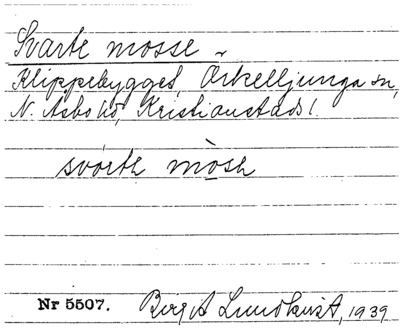 Svarte mosse
Klippebygget, Örkelljunga sn,
N. Åsbo hd, Kristianstads l.
svártə mòsə
Nr 5507. Birgit Lundkvist, 1939